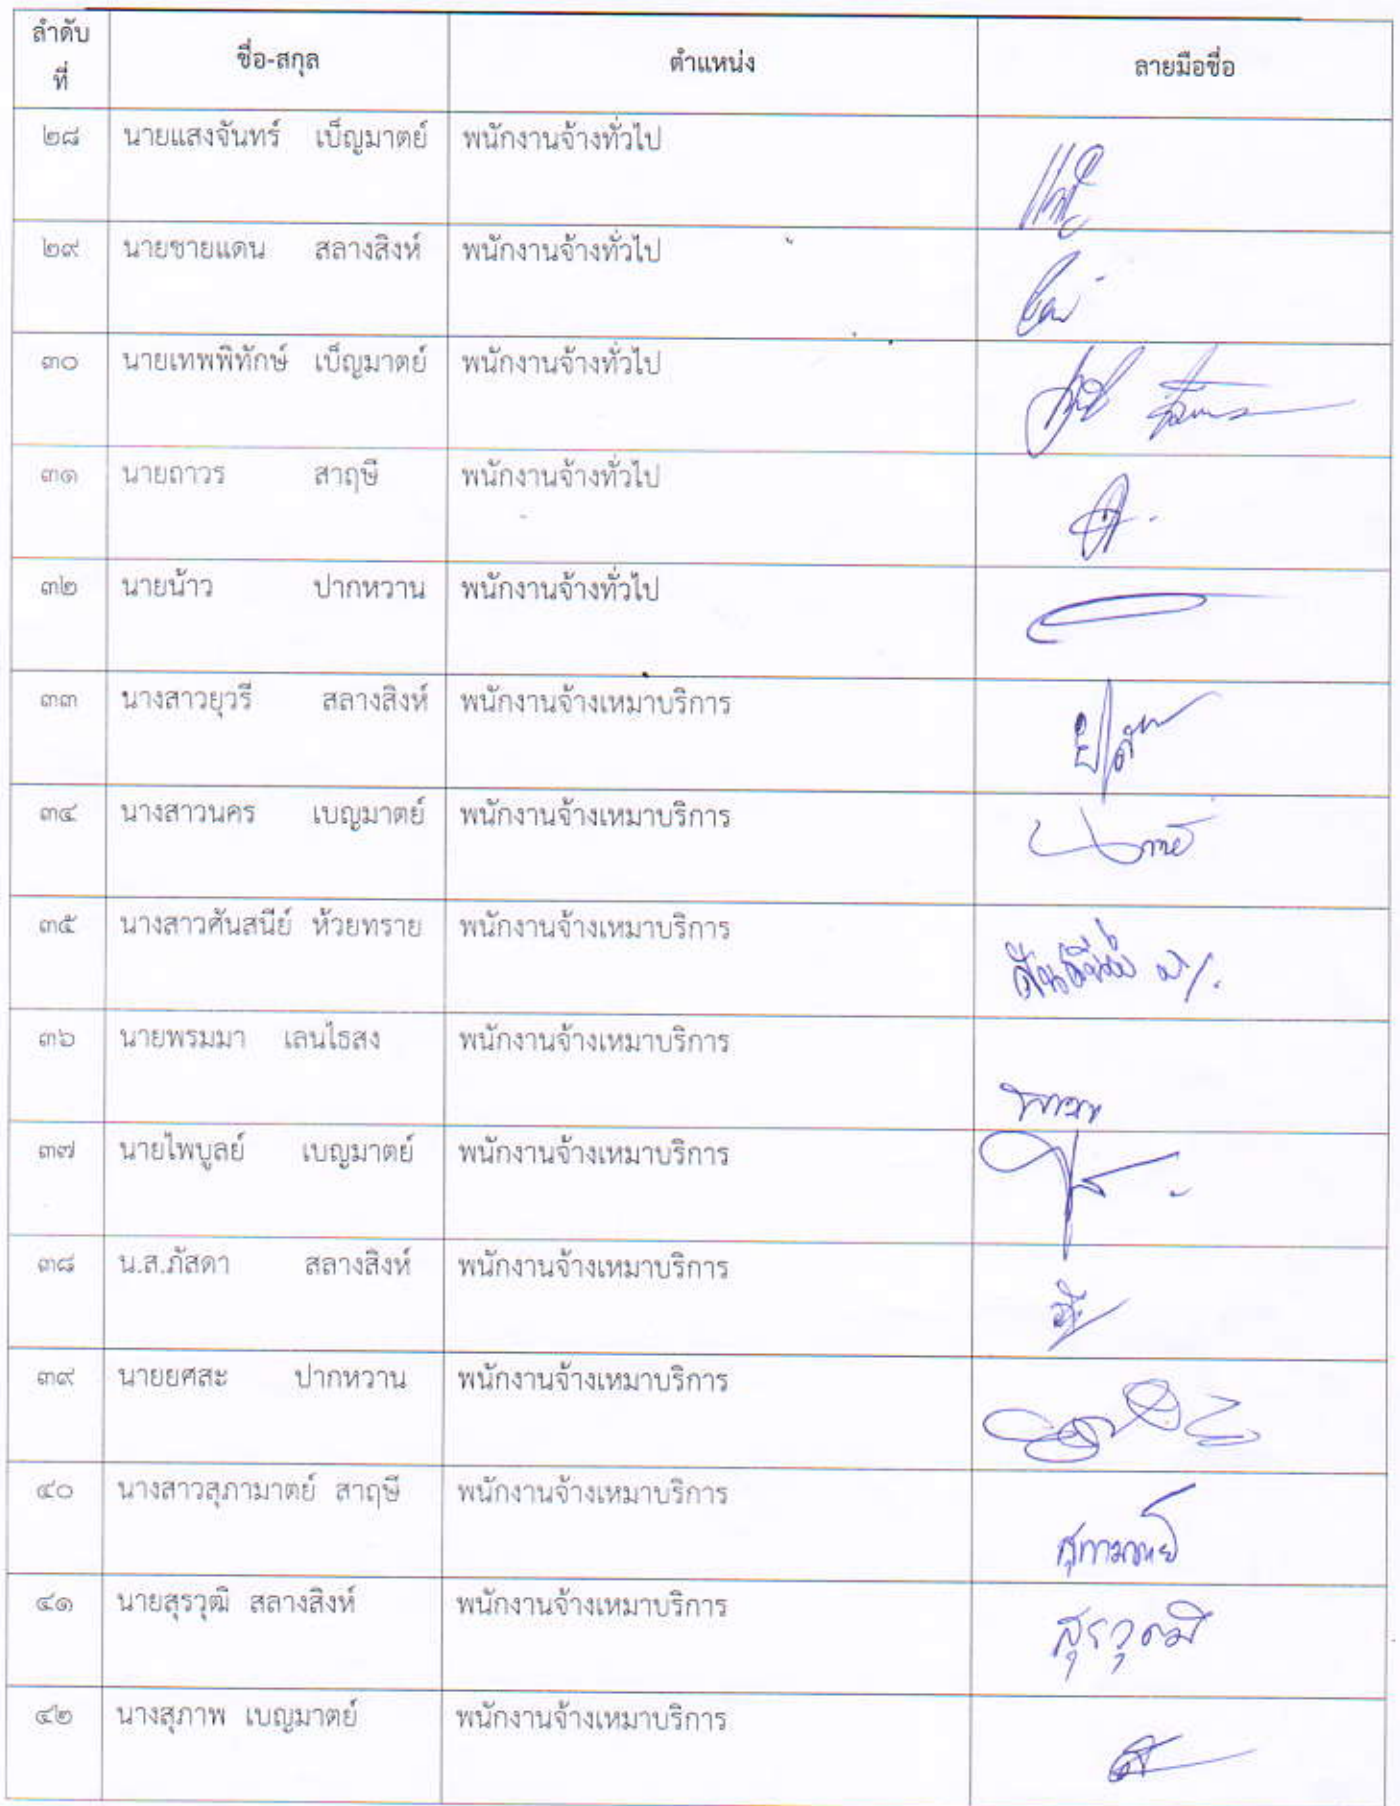 ลำดับ
ที่
ชื่อ-สกุล ตำแหน่ง ลายมือชื่อ
๒๘ นายแสงจันทร์ เบ็ญมาตย์ พนักงานจ้างทั่วไป
๒๙ นายชายแดน สลางสิงห์ พนักงานจ้างทั่วไป
๓๐ นายเทพพิทักษ์ เบ็ญมาตย์ พนักงานจ้างทั่วไป
๓๑ นายถาวร สาฤษี พนักงานจ้างทั่วไป
๓๒ นายน้าว ปากหวาน พนักงานจ้างทั่วไป
๓๓ นางสาวยุวรี สลางสิงห์ พนักงานจ้างเหมาบริการ
๓๔ นางสาวนคร เบญมาตย์ พนักงานจ้างเหมาบริการ
๓๕ นางสาวศันสนีย์ ห้วยทราย พนักงานจ้างเหมาบริการ
๓๖ นายพรมมา เลนไธสง พนักงานจ้างเหมาบริการ
๓๗ นายไพบูลย์ เบญมาตย์ พนักงานจ้างเหมาบริการ
๓๘ น.ส.ภัสดา สลางสิงห์ พนักงานจ้างเหมาบริการ
๓๙ นายยศสะ ปากหวาน พนักงานจ้างเหมาบริการ
๔๐ นางสาวสุภามาตย์ สาฤษี พนักงานจ้างเหมาบริการ
๔๑ นายสุรวุฒิ สลางสิงห์ พนักงานจ้างเหมาบริการ
๔๒ นางสุภาพ เบญมาตย์ พนักงานจ้างเหมาบริการ